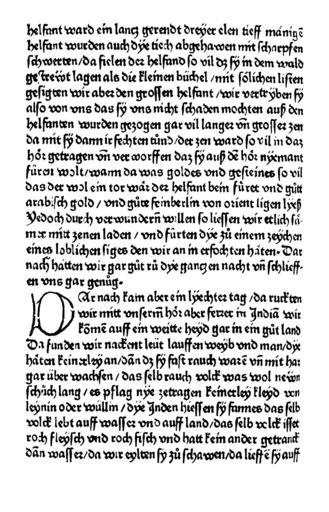 helfant ward ein lancz gerendt dreyer elen tieff mänige
helfant wurden auch dye tiech abgehawen mit scharpfen
schwerten/da fielen der helfand so vil dz sy in dem wald
gestreyt lagen als die kleinen büchel/mit sölichen listen
gesigten wir aber den grossen helfant/wir vertryben sy
also von vns das sy vns nicht schaden mochten auß den
helfanten wurden gezogen gar vil langer vñ grosser zen
da mit sy dann ir fechten tünd/der zen ward so vil in daz
hör getragen vñ verworffen daz sy auß dē hör nyemant
füren wolt/wann da was goldes vnd gesteines so vil
das der wol ein tor wär der helfant bein füret vnd gütt
arabisch gold/vnd güt feinberlin von orient ligen lyeß
Yedoch durch verwundern willen so liessen wir etlich käm
mer mit zenen laden/vnd fürten dye zů einem zeychen
eines loblichen siges den wir an in erfochten häten. Dar
nach hätten wir gar güt rů dye ganczen nacht vñ schlieff
en vns gar genůg.
DAr nach kam aber ein lyechter tag/da ruckten
wir mitt vnserm hör aber ferrer in Jndiā wir
kōmē auff ein weitte heyd gar in ein güt land
Da funden wir nackent leüt lauffen weyb vnd man/dye
häten keinerley an/dān dz sy fast rauch warē vñ mit har
gar über wachsen/das selb rauch volck was wol newn
schůch lang/es pflag nye zetragen keinerley kleyd von
leynin oder wullin/dye Jnden hiessen sy faunes das selb
volck lebt auff wasser vnd auff land/das selb volck isset
roch fleysch vnd roch fisch vnd hatt kein ander getranck
dān wasser/da wir eylten sy zů schawen/da lieff ē sy auff